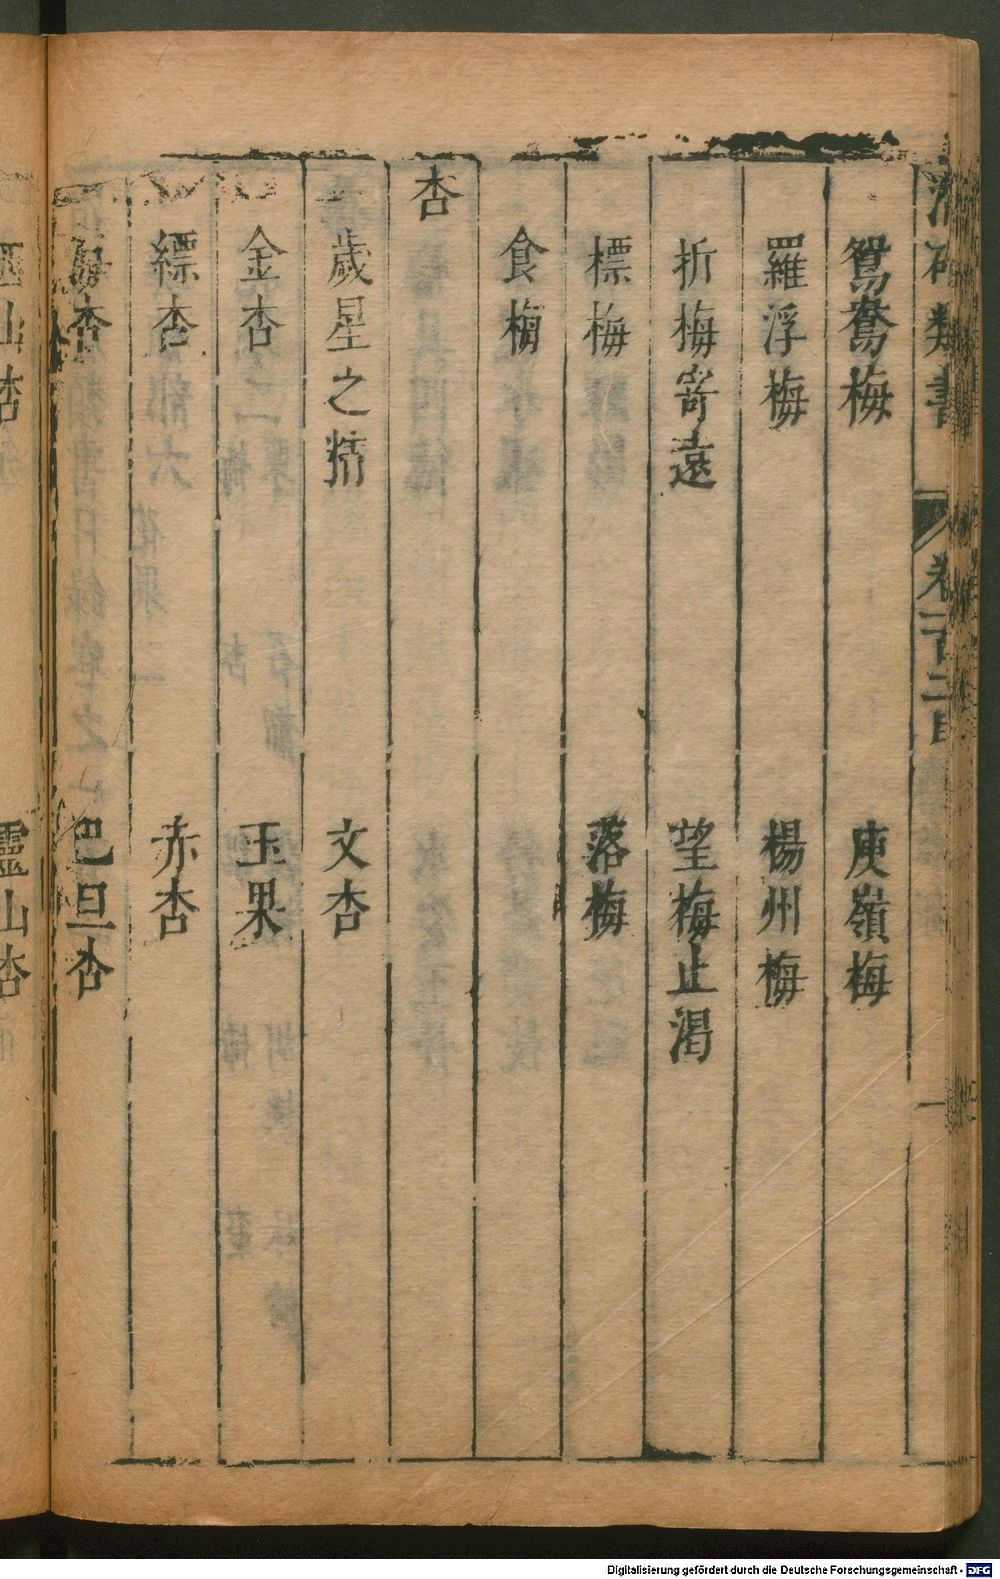 類書 卷一百二目 一
鴛鴦梅 庾嶺梅
羅浮梅 楊州梅
折梅寄遠 望梅止渴
標梅 落梅
食梅
杏
歲星之精 文杏
金杏 玉果
縹杏 赤杏
杏 巴旦杏
山杏 靈山杏
Digitalisierung gefördert durch die Deutsche Forschungsgemeinschaft - DFG